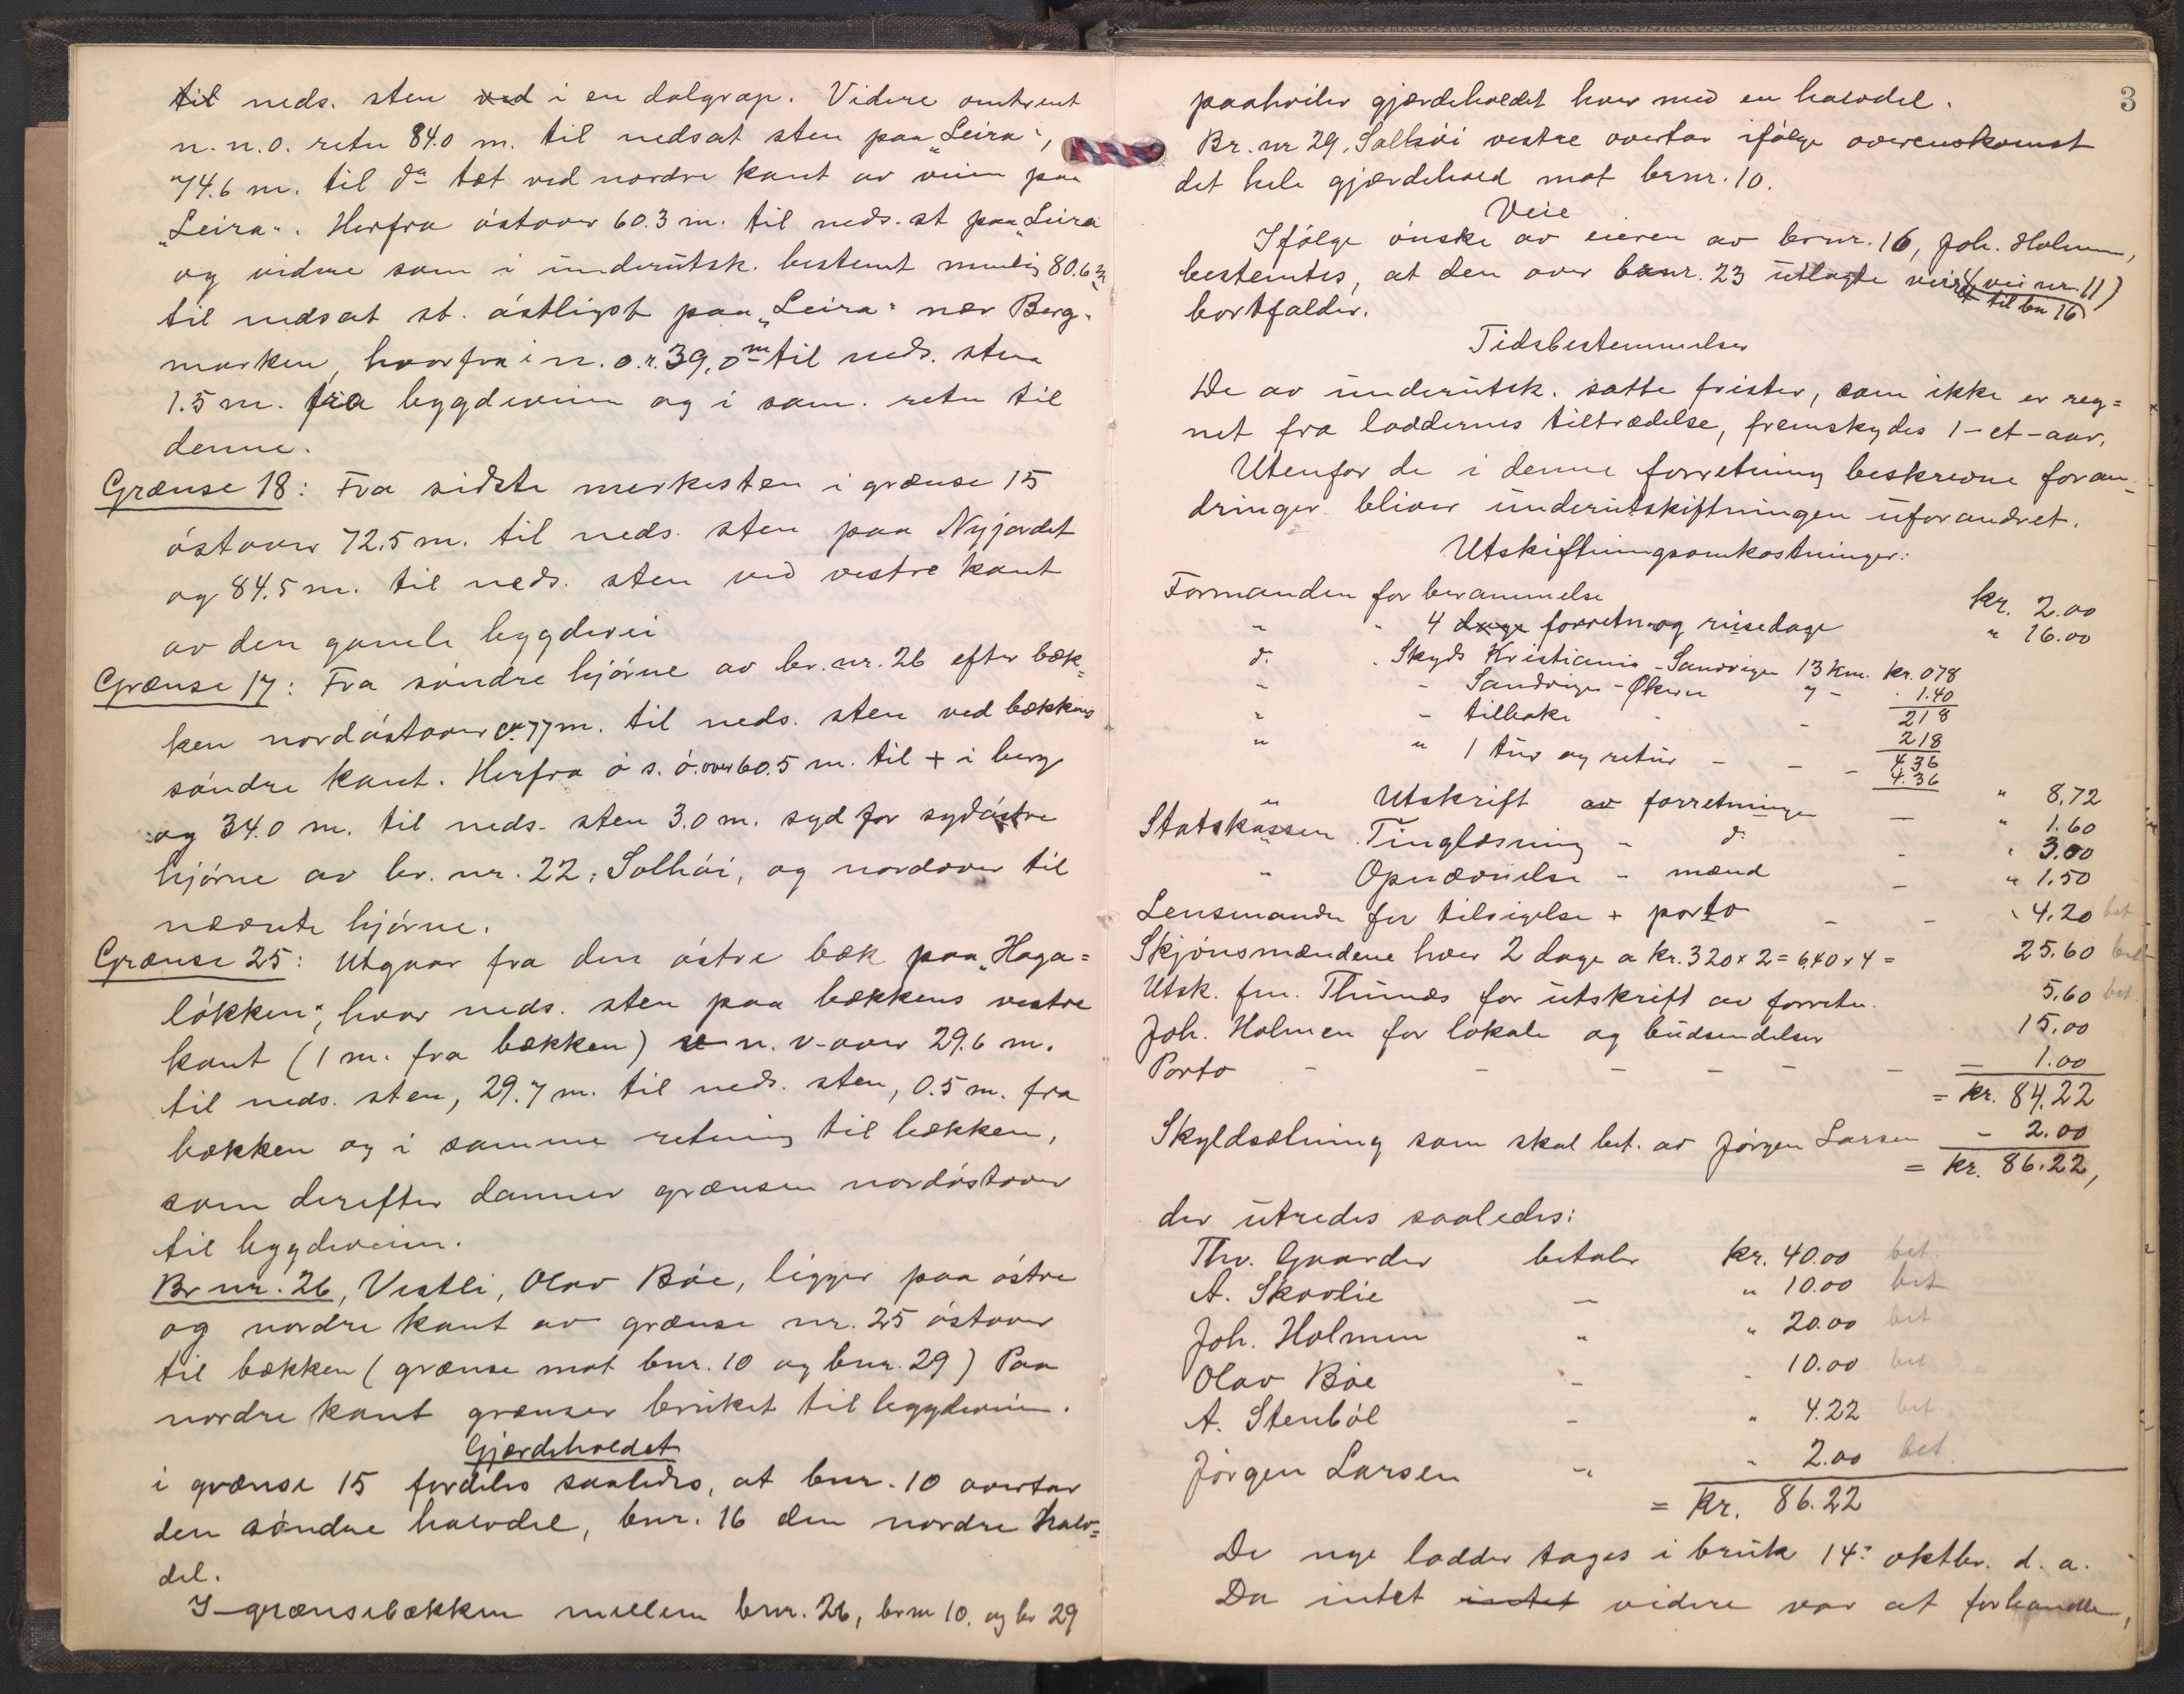 til neds. sten ved i en dalgrop. Videre omtrent
n.n.o. retn 84.0 m. til nedsat sten paa „Leira“,
74.6 m. til do tæt ved nordre kant av veien paa
„Leira“. Herfra østover 60.3 m. til neds. st paa „Leira
og videre som i underutsk. bestemt nemlig 80.6 m
til nedsat st. østligst paa „Leira“ nær Berg-
marken, hvorfra i n.o.r. 39,0 m til neds. sten
1.5 m. fra bygdeveien og i sam. retn til
denne.
Grænse 18: Fra sidste merkesten i grænse 15
østover 72.5 m. til neds. sten paa Nyjordet
og 84.5 m. til neds. sten ved vestre kant
av den gamle bygdevei
Grænse 17: Fra søndre hjørne av br. nr. 26 efter bæk=
ken nordøstover ca 77 m. til neds. sten ved bækkens
søndre kant. Herfra ø s. ø. over 60.5 m. til + i berg
og 34.0 m. til neds. sten 3.0 m. syd for sydøstre
hjørne av br. nr. 22, Solhöi, og nordover til
nævnte hjørne.
Grænse 25: Utgaar fra den østre bæk paa „Haga=
løkken“, hvor neds. sten paa bækkens vestre
kant (1 m. fra bækken) n. v-over 29.6 m.
til neds. sten, 29.7 m. til neds. sten, 0.5 m. fra
bækken og i samme retning til bækken,
som derefter danner grænsen nordøstover
til bygdeveien.
Br nr. 26, Vestli, Olav Bøe, ligger paa østre
og nordre kant av grænse nr. 25 østover
til bækken (grænse mot bnr. 10 og bnr. 29) Paa
nordre kant grænser bruket til bygdeveien.
Gjærdeholdet
i grænse 15 fordeles saaledes, at bnr. 10 overtar
den søndre halvdel, bnr. 16 den nordre halv=
del.
I grænsebækken mellem brnr. 26, brnr 10. og br 29
3
paahviler gjærdeholdet hver med en halvdel.
Br. nr 29, Solhöi vestre overtar ifølge overenskomst
det hele gjærdehold mot brnr. 10.
Veie
Ifølge ønske av eieren av brnr. 16, Joh. Holmen,
bestemtes, at den over brnr. 23 utlagte veiret (vei nr. 11)
til bn 16
bortfalder.
Tidsbestemmelser
De av underutsk. satte frister, som ikke er reg=
net fra loddernes tiltrædelse, fremskydes 1-et-aar.
Utenfor de i denne forretning beskrevne foran-
dringer bliver underutskiftningen uforandret.
Utskiftningsomkostninger:
Formanden for berammelse kr. 2.00
" " 4 dage forretn. og reisedage " 16.00
d. " Skyds Kristiania - Sandviken 13 km. kr. 078
" - Sandviken - Økern 7 - " 1.40
" - tilbake - - 218
218
" " 1 tur og retur - - - 4.36
4.36
" 8,72
" Utskrift av forretningen — " 1.60
Statskassen Tinglæsning " d. - " 3.00
" Opnævnelse " mænd — " 1.50
Lensmanden for tilsigelse + porto — - " 4.20 bet
Skjønsmændene hver 2 dage a kr. 320 x 2 = 6,40 x 4 = 25.60 bet
Utsk. fm. Thunæs for utskrift av forretn. 5.60 bet.
Joh. Holmen for lokale og budsendelser 15.00
Porto - - - - - - 1.00
= kr. 84.22
Skyldsætning som skal bet. av Jørgen Larsen - 2.00
= kr. 86.22,
der utredes saaledes:
Thv. Gaarder betaler kr. 40.00 bet.
A. Skovlie — " 10.00 bet
Joh. Holmen " " 20.00 bet
Olav Bøe - " 10.00 bet
A. Stenbøl - " 4.22 bet.
Jørgen Larsen " " 2.00 bet.
= kr. 86.22
De nye lodder tages i bruk 14: oktbr. d. a.
Da intet intet videre var at forhandle,